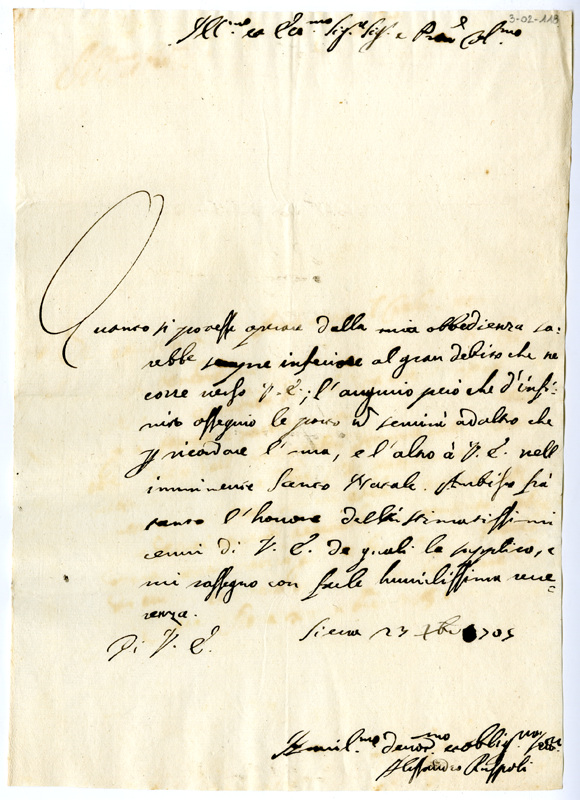 3-02-113
Ill.mo et Ecc.mo Sig.r Sig.r e Pron Col.mo
Quanto si potesse operare dalla mia obbedienza sa-
rebbe sempre inferiore al gran debito che ne
corre verso V. E.; l'augurio però che d'infi-
nito ossequio le porto n servirà ad altro che
p ricordare l'una, e l'altro à V. E. nell
imminente Santo Natale. Ambisco frà
tanto l'honore delli stimatissimi
cenni di V. E. de quali la supplico, e
mi rassegno con humilissima reve-
renza.
Di V. E.
Siena 23 Xbre 1705
Humil.mo Devot.mo et obblig.mo
Alessandro Ruspoli